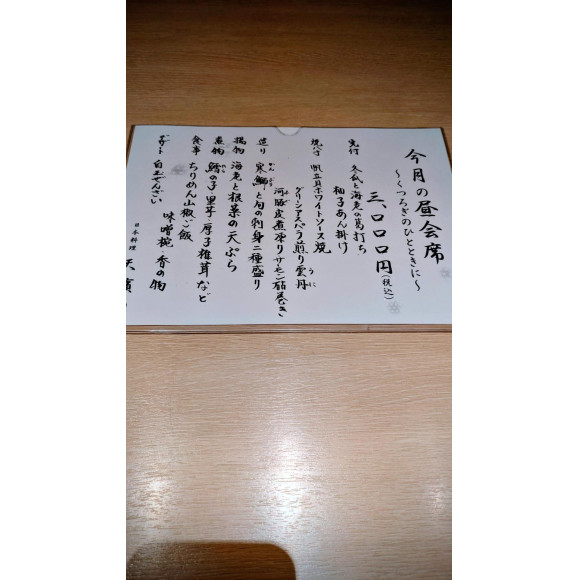 今月の昼会席
～くつろぎのひとときに～
三、〇〇〇円(税込)
先付 冬瓜と海老の葛打ち
柚子あん掛け
焼八寸 帆立貝ホワイトソース焼
グリーンアスパラ煎り雲丹
うに
河豚皮煮凍り サーモン砧巻き
ふぐ
造り 寒鰤と旬の刺身二種盛り
かんぶり
揚物 海老と根菜の天ぷら
煮物 鱈の子・里芋・厚子椎茸など
食事 ちりめん山椒ご飯
味噌椀 香の物
デザート 白玉ぜんざい
日本料理